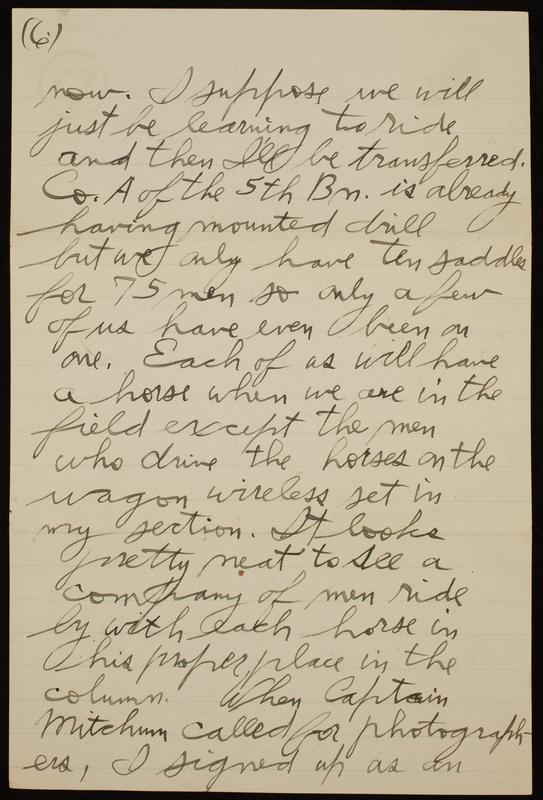 (6)
now. I suppose we will
just be learning to ride
and then I'll be transferred.
Co. A of the 5th Bn. is already
having mounted drill
but we only have ten saddles
for 75 men so only a few
of us have even been on
one. Each of us will have
a horse when we are in the
field except the men
who drive the horses on the
wagon wireless set in
my section. It looks
pretty neat to see a
company of men ride
by with each horse in
his proper place in the
column. When Captain
Mitchum called for photograph-
ers, I signed up as an